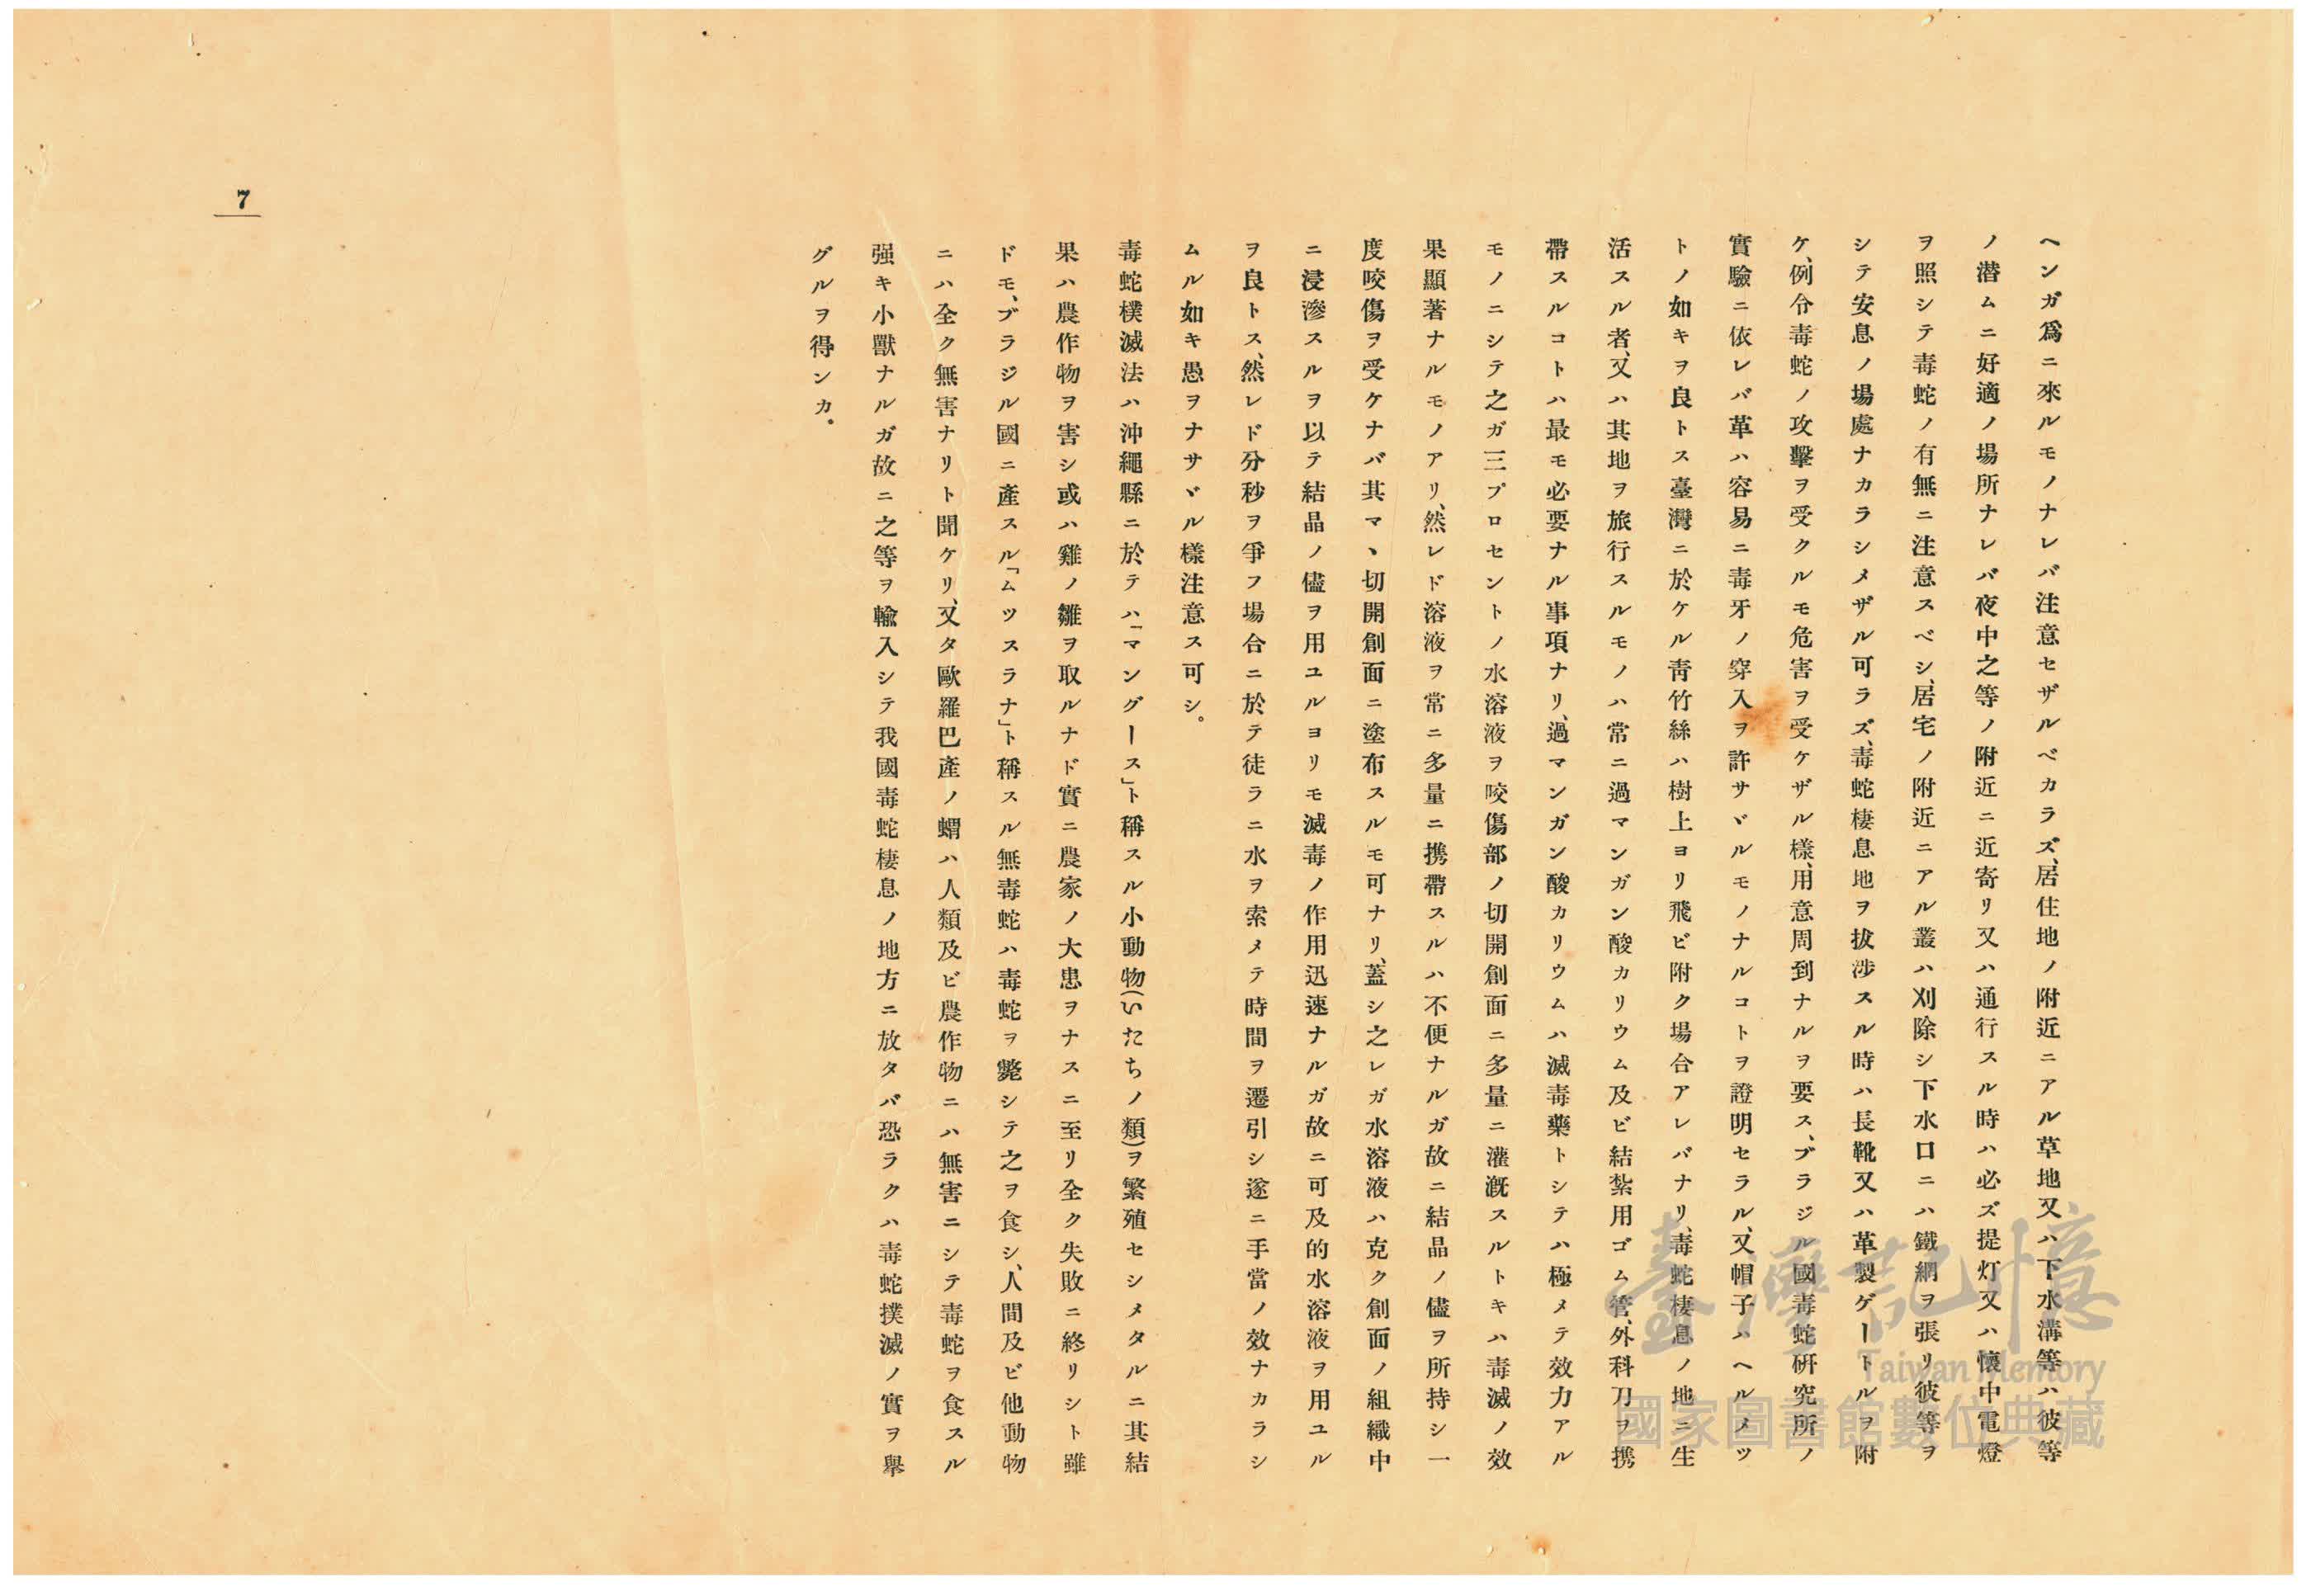 ヘンガ爲ニ來ルモノナレバ注意セザルベカラズ、居住地ノ附近ニアル草地又ハ下水溝等ハ彼等
ノ潜ムニ好適ノ場所ナレバ夜中之等ノ附近ニ近寄リ又ハ通行スル時ハ必ズ提灯又ハ懷中電燈
ヲ照シテ毒蛇ノ有無ニ注意スベシ、居宅ノ附近ニアル叢ハ刈除シ下水口ニハ鐵網ヲ張リ彼等ヲ
シテ安息ノ場處ナカラシメザル可ラズ、毒蛇棲息地ヲ拔渉スル時ハ長靴又ハ革製ゲートルヲ附
ケ、例令毒蛇ノ攻擊ヲ受クルモ危害ヲ受ケザル樣、用意周到ナルヲ要ス、ブラジル國毒蛇硏究所ノ
實驗ニ依レバ革ハ容易ニ毒牙ノ穿入ヲ許サヾルモノナルコトヲ證明セラル、又帽子ハヘルメツ
トノ如キヲ良トス臺灣ニ於ケル靑竹絲ハ樹上ヨリ飛ビ附ク場合アレバナリ、毒蛇棲息ノ地ニ生
活スル者、又ハ其地ヲ旅行スルモノハ常ニ過マンガン酸カリウム及ビ結紮用ゴム管、外科刀ヲ携
帶スルコトハ最モ必要ナル事項ナリ、過マンガン酸カリウムハ滅毒藥トシテハ極メテ效力アル
モノニシテ之ガ三プロセントノ水溶液ヲ咬傷部ノ切開創面ニ多量ニ灌漑スルトキハ毒滅ノ效
果顯著ナルモノアリ、然レド溶液ヲ常ニ多量ニ携帶スルハ不便ナルガ故ニ結晶ノ儘ヲ所持シ一
度咬傷ヲ受ケナバ其マヽ切開創面ニ塗布スルモ可ナリ、蓋シ之レガ水溶液ハ克ク創面ノ組織中
ニ浸滲スルヲ以テ結晶ノ儘ヲ用ユルヨリモ滅毒ノ作用迅速ナルガ故ニ可及的水溶液ヲ用ユル
ヲ良トス、然レド分秒ヲ爭フ場合ニ於テ徒ラニ水ヲ索メテ時間ヲ遷引シ遂ニ手當ノ效ナカラシ
ムル如キ愚ヲナサヾル樣注意ス可シ。
毒蛇樸滅法ハ沖繩縣ニ於テハ「マングース」ト稱スル小動物(いたちノ類)ヲ繁殖セシメタルニ其結
果ハ農作物ヲ害シ或ハ雞ノ雛ヲ取ルナド實ニ農家ノ大患ヲナスニ至リ全ク失敗ニ終リシト雖
ドモ、ブラジル國ニ產スル「ムツスラナ」ト稱スル無毒蛇ハ毒蛇ヲ斃シテ之ヲ食シ、人間及ビ他動物
ニハ全ク無害ナリト聞ケリ、又タ歐羅巴產ノ蝟ハ人類及ビ農作物ニハ無害ニシテ毒蛇ヲ食スル
强キ小獸ナルガ故ニ之等ヲ輸入シテ我國毒蛇棲息ノ地方ニ放タバ恐ラクハ毒蛇撲滅ノ實ヲ擧
グルヲ得ンカ。
7
臺灣記憶
Taiwan Memory
國家圖書館數位典藏